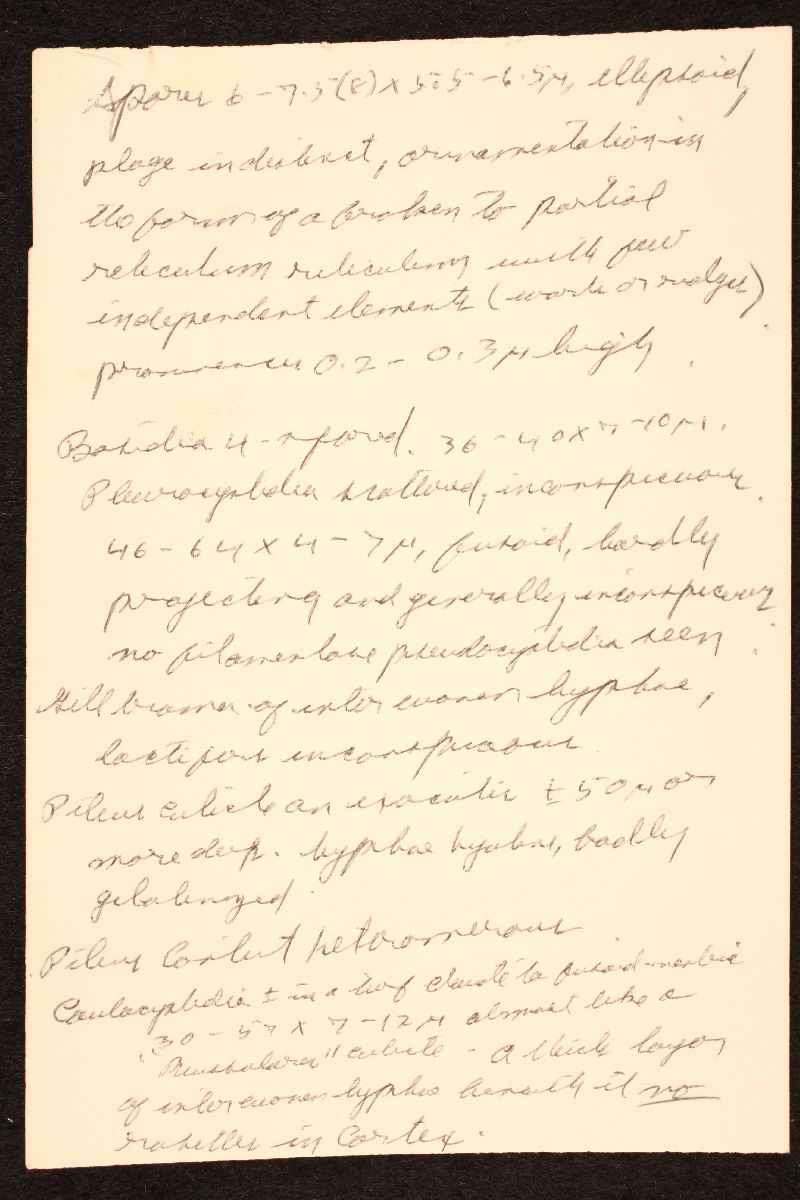 Spores 6-7.5(8) x 5.5-6.5μ, ellipsoid,
plage indistinct, ornamentation in
the form of a broken to partial
reticulum reticulum with few
independent elements (warts or ridges)
prominences 0.2 - 0.3μ high.
Basidia 4-spored. 36-40x7-10μ.
Pleurocystidia scattered, inconspicuous
46-64 x 4-7μ, fusoid, hardly
projecting and generally inconspicuous
no filamentose pseudocystidia seen.
Gill trama of interwoven hyphae,
lactifers inconspicuous
Pileus cuticle an ixocutis ± 50μ or
more deep. hyphae hyaline, badly
gelatinized.
Pileus context heteromerous
Caulocystidia ± in a turf clavate to fusoid-
30-57 x 7-12μ almost like a
" cuticle - a thick layer
of interwoven hyphae beneath it no
rosettes in cortex.